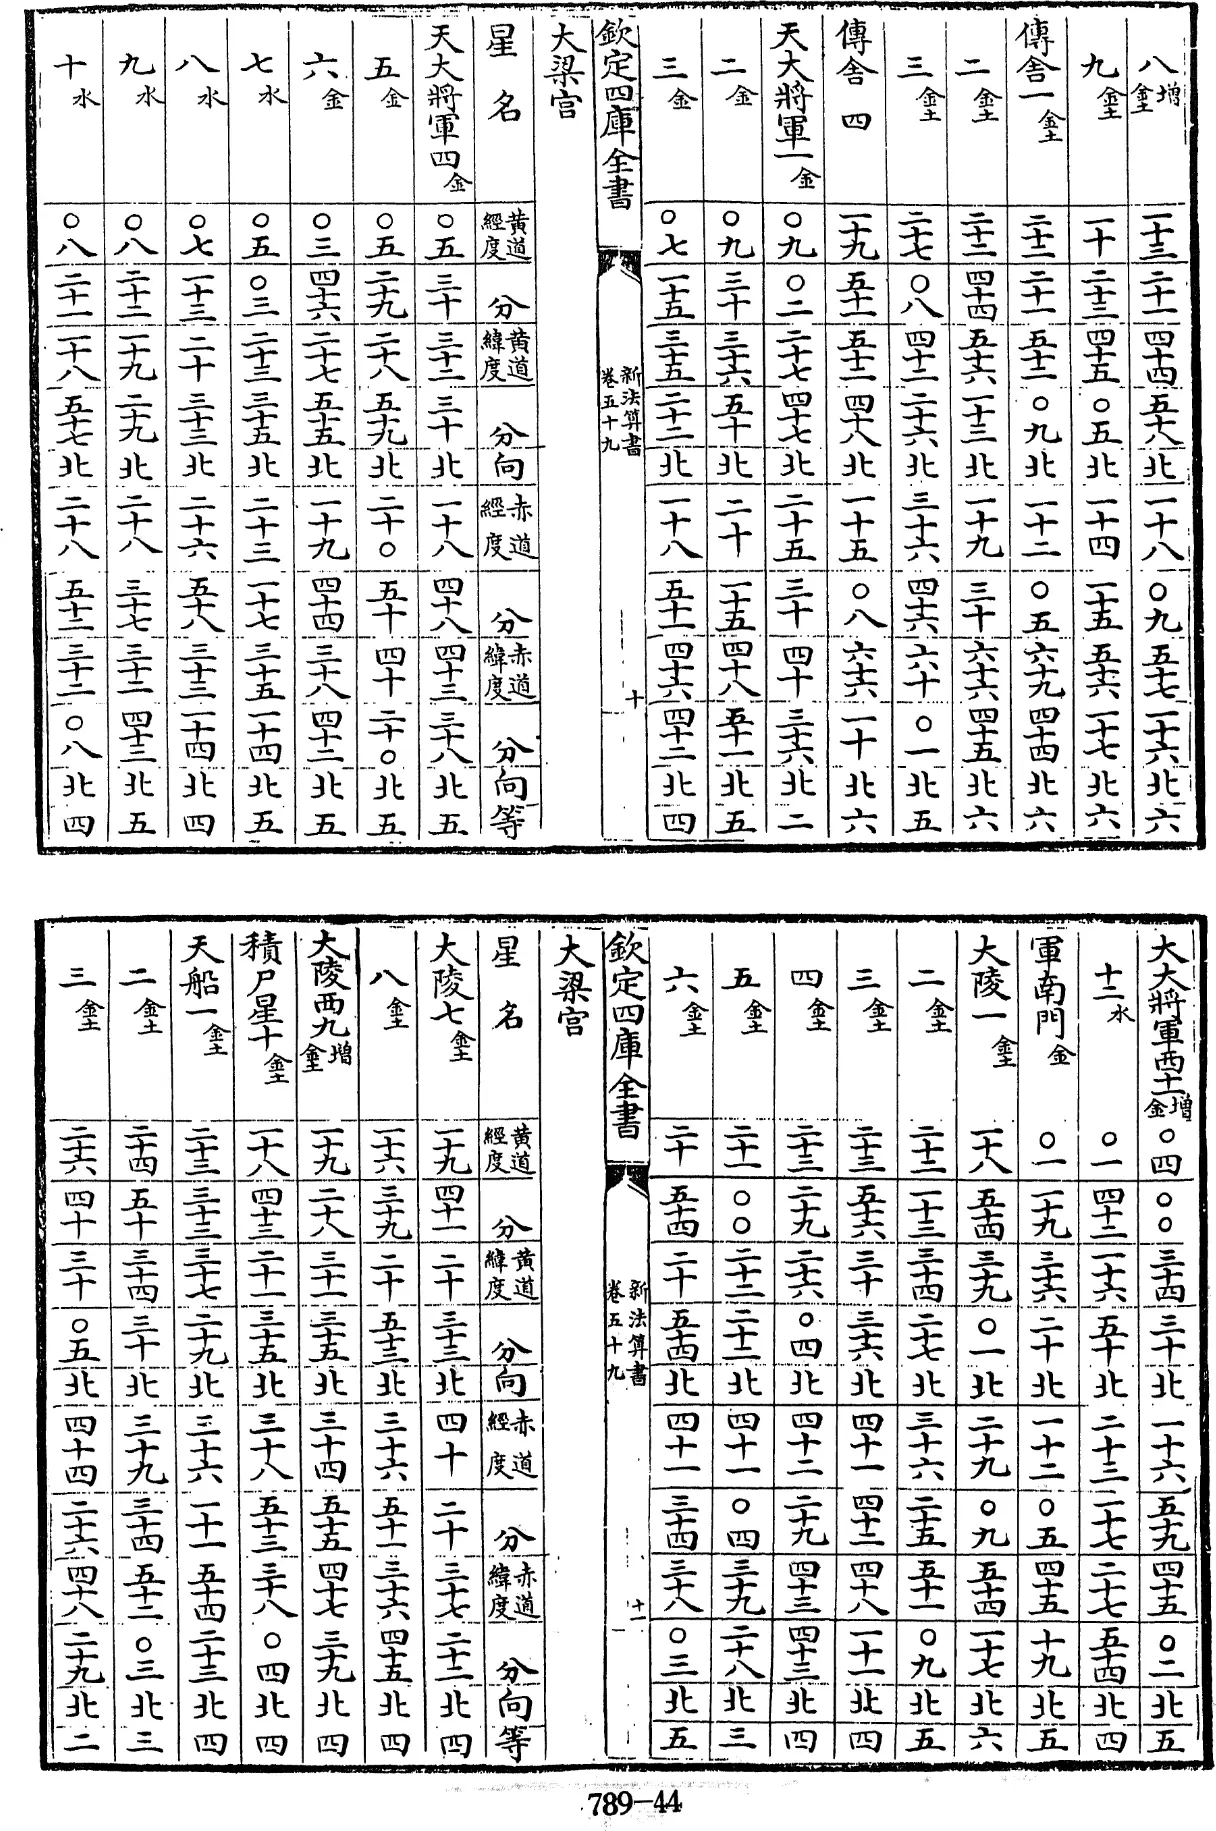 八增金土 一十三 二十一 四十四 五十八 北 一十八 ○九 五十七 一十六 北 六
九金土 一十 二十三 四十五 ○五 北 一十四 一十五 五十六 一十七 北 六
傳舍一金土 二十二 二十一 五十二 ○九 北 一十二 ○五 六十九 四十四 北 六
二金土 二十二 四十四 五十六 一十三 北 一十九 三十 六十六 四十五 北 六
三金土 二十七 ○八 四十二 二十六 北 三十六 四十六 六十 ○一 北 五
傳舍四 一十九 五十一 五十二 四十八 北 一十五 ○八 六十六 一十 北 六
天大將軍一金 ○九 ○二 二十七 四十七 北 二十五 三十 四十 三十六 北 二
二金 ○九 三十 三十六 五十 北 二十 一十五 四十八 五十一 北 五
三金 ○七 一十五 三十五 二十二 北 一十八 五十一 四十六 四十二 北 四
欽定四庫全書
新法算書
卷五十九
十
大梁宮
星名 黃道經度 分 黃道緯度 分 向 赤道經度 分 赤道緯度 分 向 等
天大將軍四金 ○五 三十 三十二 三十 北 一十八 四十八 四十三 三十八 北 五
五金 ○五 二十九 二十八 五十九 北 二十○ 五十 四十 二十○ 北 五
六金 ○三 四十六 二十七 五十五 北 一十九 四十四 三十八 四十二 北 五
七水 ○五 ○三 二十三 三十五 北 二十三 一十七 三十五 一十四 北 五
八水 ○七 一十三 二十 三十三 北 二十六 五十八 三十三 一十四 北 四
九水 ○八 二十二 一十九 二十九 北 二十八 三十七 三十二 四十三 北 五
十水 ○八 二十一 一十八 五十七 北 二十八 五十二 三十二 ○八 北 四
天大將軍西十一增金 ○四 ○○ 三十四 三十 北 一十六 五十九 四十五 ○二 北 五
十二水 ○一 四十二 一十六 五十 北 二十三 二十七 二十七 五十四 北 四
軍南門金 ○一 一十九 三十六 二十 北 一十二 ○五 四十五 十九 北 五
大陵一金土 一十八 五十四 三十九 ○一 北 二十九 ○九 五十四 一十七 北 六
二金土 二十二 一十三 三十四 二十七 北 三十六 二十五 五十一 ○九 北 五
三金土 二十三 五十六 三十 三十六 北 四十一 四十二 四十八 一十一 北 四
四金土 二十三 二十九 二十六 ○四 北 四十二 二十九 四十三 四十三 北 四
五金土 二十一 ○○ 二十二 二十二 北 四十一 ○四 三十九 二十八 北 三
六金土 二十 五十四 二十 五十四 北 四十一 三十四 三十八 ○三 北 五
欽定四庫全書
新法算書
卷五十九
十一
大梁宮
星名 黃道經度 分 黃道緯度 分 向 赤道經度 分 赤道緯度 分 向 等
大陵七金土 一十九 四十一 二十 三十三 北 四十 二十 三十七 二十二 北 四
八金土 一十六 三十九 二十 五十三 北 三十六 五十一 三十六 四十五 北 四
大陵西九增金土 一十九 二十八 三十一 三十五 北 三十四 五十五 四十七 三十九 北 四
積尸星十金土 一十八 四十三 二十一 三十五 北 三十八 五十三 三十八 ○四 北 四
天船一金土 二十三 三十三 三十七 二十九 北 三十六 一十一 五十四 二十三 北 四
二金土 二十四 五十 三十四 三十 北 三十九 三十四 五十二 ○三 北 三
三金土 二十六 四十 三十 ○五 北 四十四 二十六 四十八 二十九 北 二
789-44